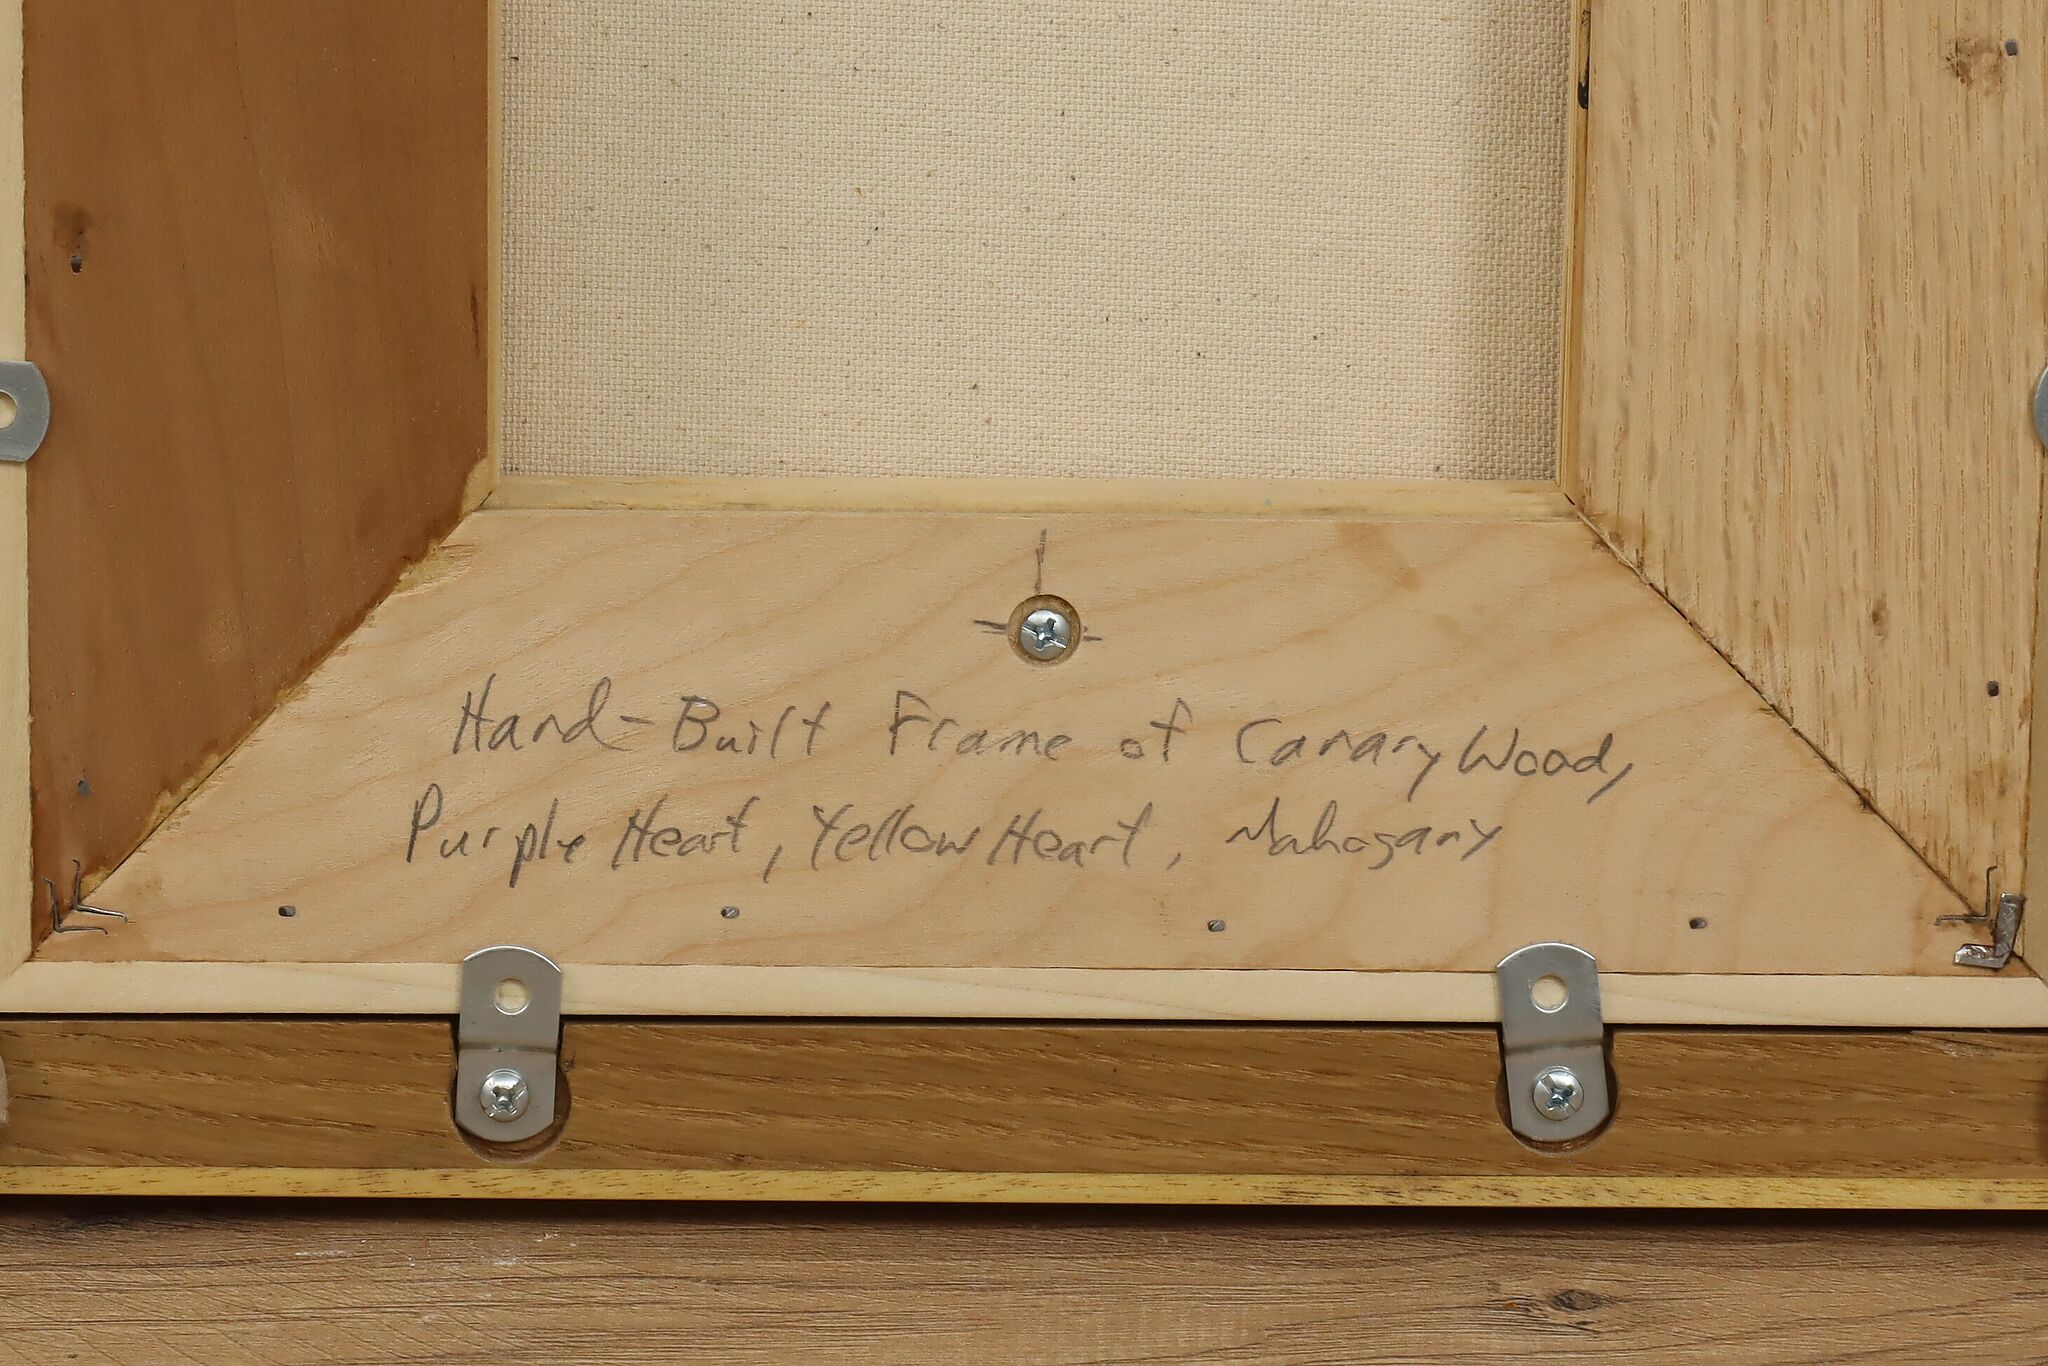 Hand-Built Frame of Canary Wood,
Purple Heart, Yellow Heart, Mahogany